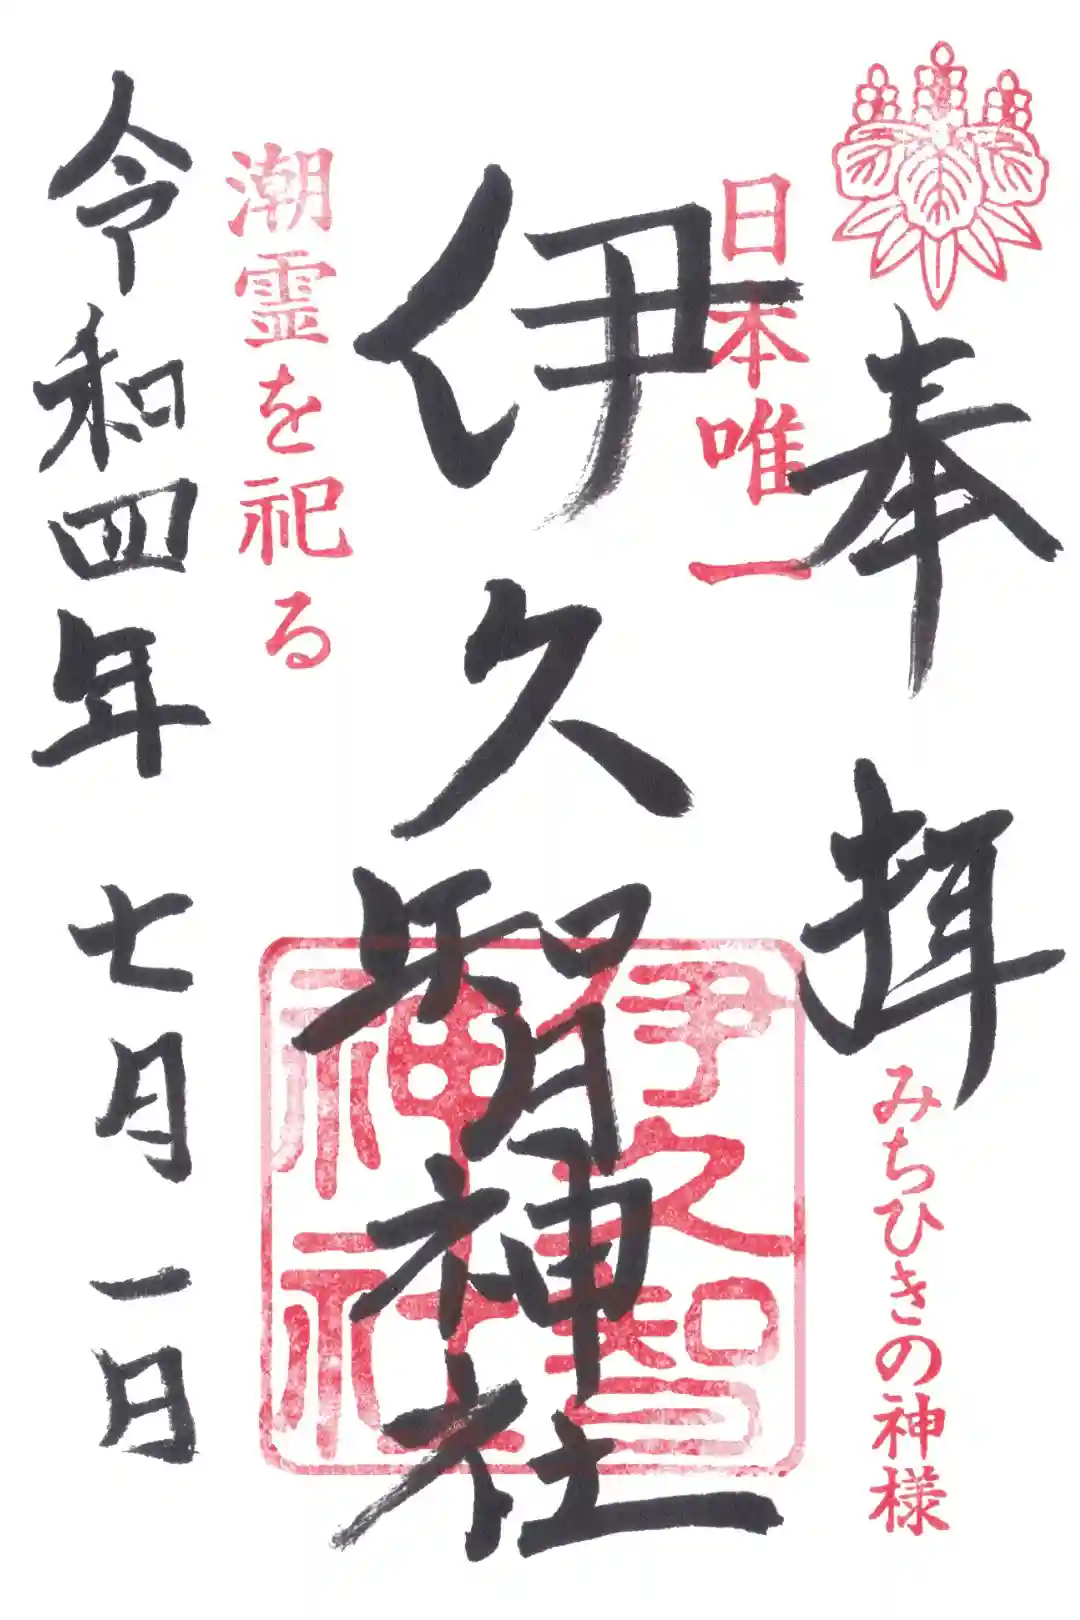 奉拝
みちひきの神様
日本唯一
伊久智神社
伊久智
神社
潮霊を祀る
令和四年 七月一日